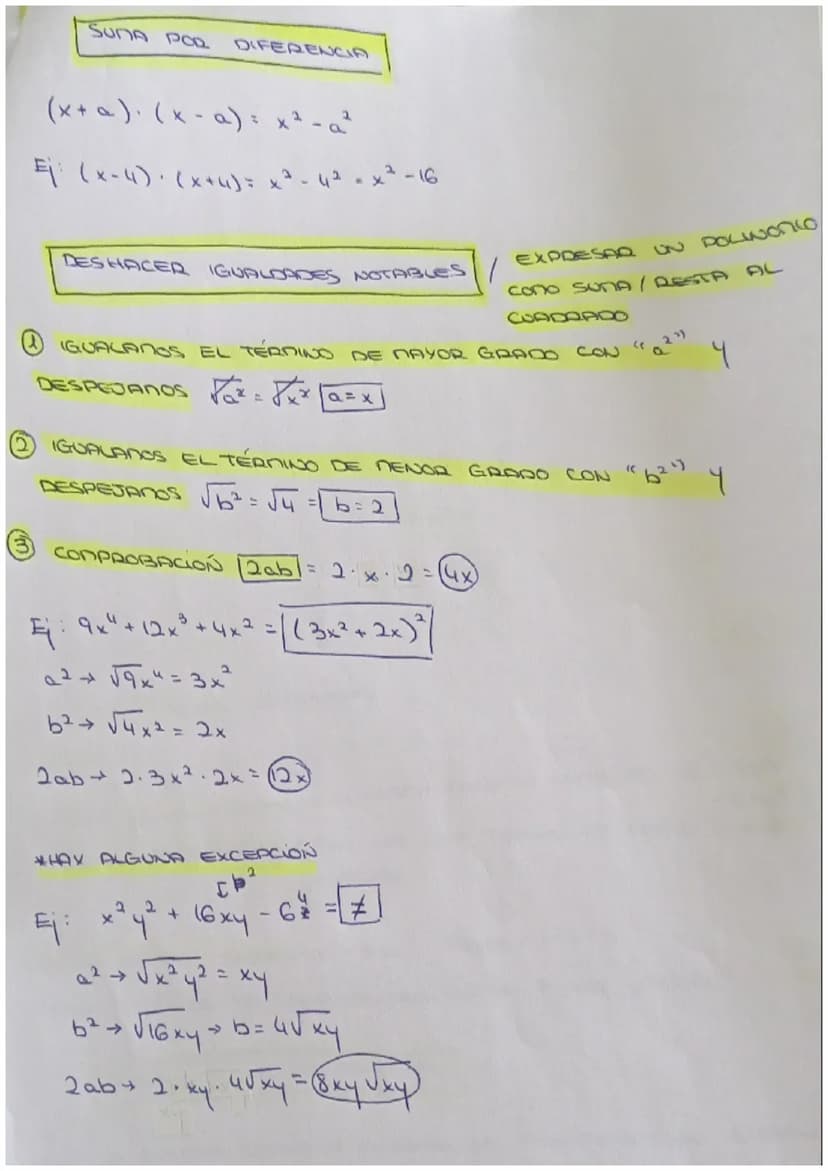 SUMA POR DIFERENCIA
(x+a)·(x-a)= x² - a²
Ej: (x-4)·(x+4)= x² - 4² = x² -16
DESHACER IGUALDADES NOTABLES / EXPRESAR UN POLINOMIO
COMO SUMA / RESTA AL
CUADRADO
① IGUALAMOS EL TÉRMINO DE MAYOR GRADO CON "a²" Y
DESPEJAMOS √a² = √x² a=x
② IGUALAMOS EL TÉRMINO DE MENOR GRADO CON "b²" Y
DESPEJAMOS √b² = √4 = b=2
③ COMPROBACIÓN 2ab = 2·x·2 = 4x
Ej: 9x⁴ + 12x³ + 4x² = (3x² + 2x)²
a² → √9x⁴ = 3x²
b² → √4x² = 2x
2ab → 2·3x²·2x = 12x
*HAY ALGUNA EXCEPCIÓN
b²
Ej: x²y² + 16xy - 64 = ≠
a² → √x²y² = xy
b² → √16xy → b= 4√xy
2ab → 2·xy·4√xy = 8xy√xy